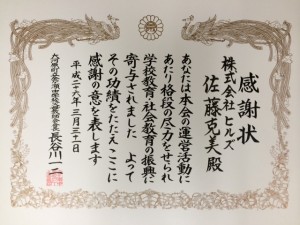 感謝状
株式会社ヒルズ
佐藤克美殿
あなたは本会の運営活動に
あたり格段の尽力をせられ
学校教育・社会教育の振興に
寄与されました よって
その功績をたたえ ここに
感謝の意を表します
平成二十六年三月三十一日
長谷川一二